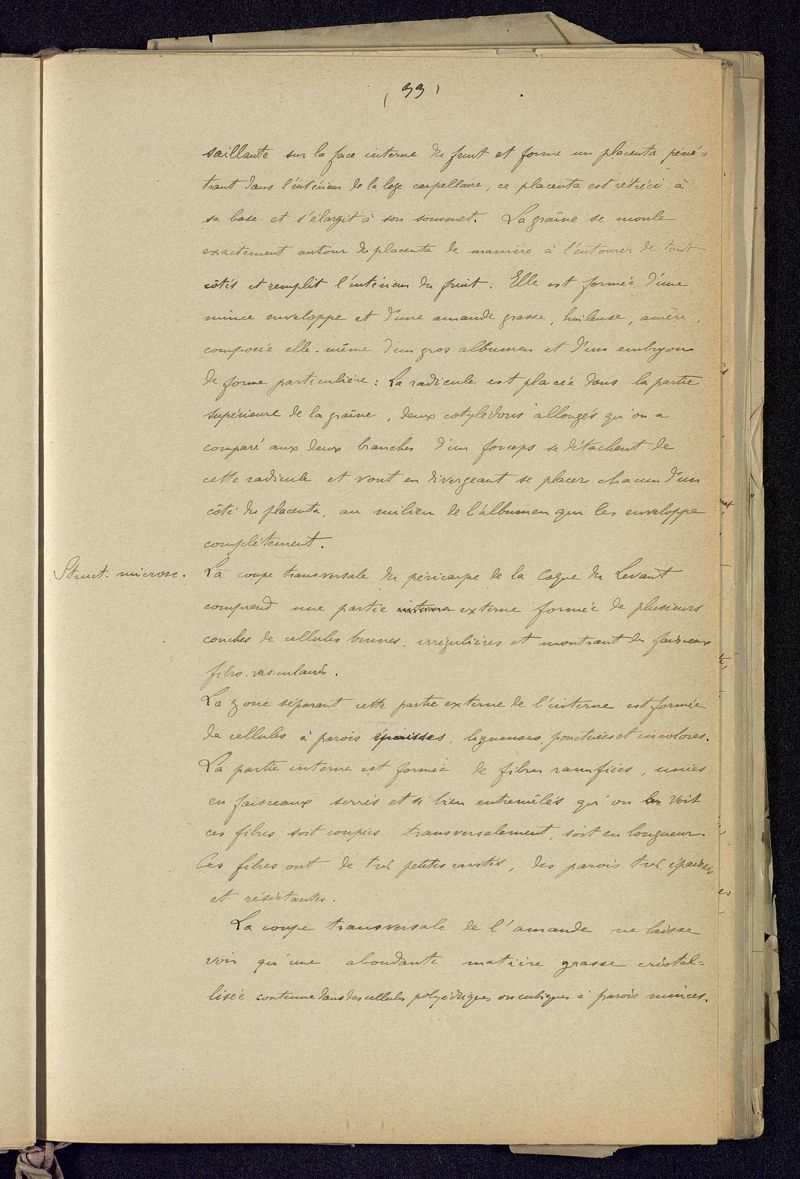 ( 33 )
saillante sur la face interne du fruit et forme un placenta péné-
trant dans l'intérieur de la loge carpellaire, ce placenta est rétréci à
sa base et s'élargit à son sommet. La graîne se moule
exactement autour du placenta de manière à l'entourer de tout
côtés et remplit l'intérieur du fruit. Elle est formée d'une
mince enveloppe et d'une amande grasse, huileuse, amère,
composée elle-même d'un gros albumen et d'un embryon
de forme particulière : La radicule est placée dans la partie
supérieure de la graîne, deux cotylédons allongés qu'on a
comparé aux deux branches d'un forceps se détachent de
cette radicule et vont en divergeant se placer chacun d'un
côté du placenta, au milieu de l'albumen qui les enveloppe
complètement.
Struct. microsc. La coupe transversale du péricarpe de la Coque du Levant
comprend une partie interne externe formée de plusieurs
couches de cellules brunes, irrégulières et montrant des faisceaux
fibro-vasculaires.
La zone séparant cette partie externe de l'interne est formée
de cellules à parois épaisses, ligneuses, ponctuées et incolores.
La partie interne est formée de fibres ramifiées, unies
en faisceaux serrés et si bien entremêlés qu'on les voit
ces fibres soit coupées transversalement, soit en longueur.
Ces fibres ont de très petites cavités, des parois très épaisses
et résistantes.
La coupe transversale de l'amande ne laisse
voir qu'une abondante matière grasse cristal-
lisée contenue dans des cellules polyédriques ou cubiques à parois minces.